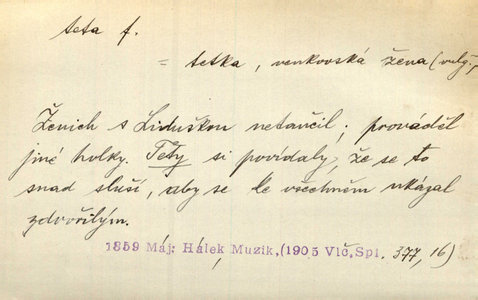 teta f.
= tetka, venkovská žena (vulg.,
Ženich s Liduškou netančil; prováděl
jiné holky. Tety si povídaly, že se to
snad sluší, aby se ke všechněm ukázal
zdvořilým.
1859 Máj: Hálek Muzik, (1905 Vlč, Spi. 377, 16)